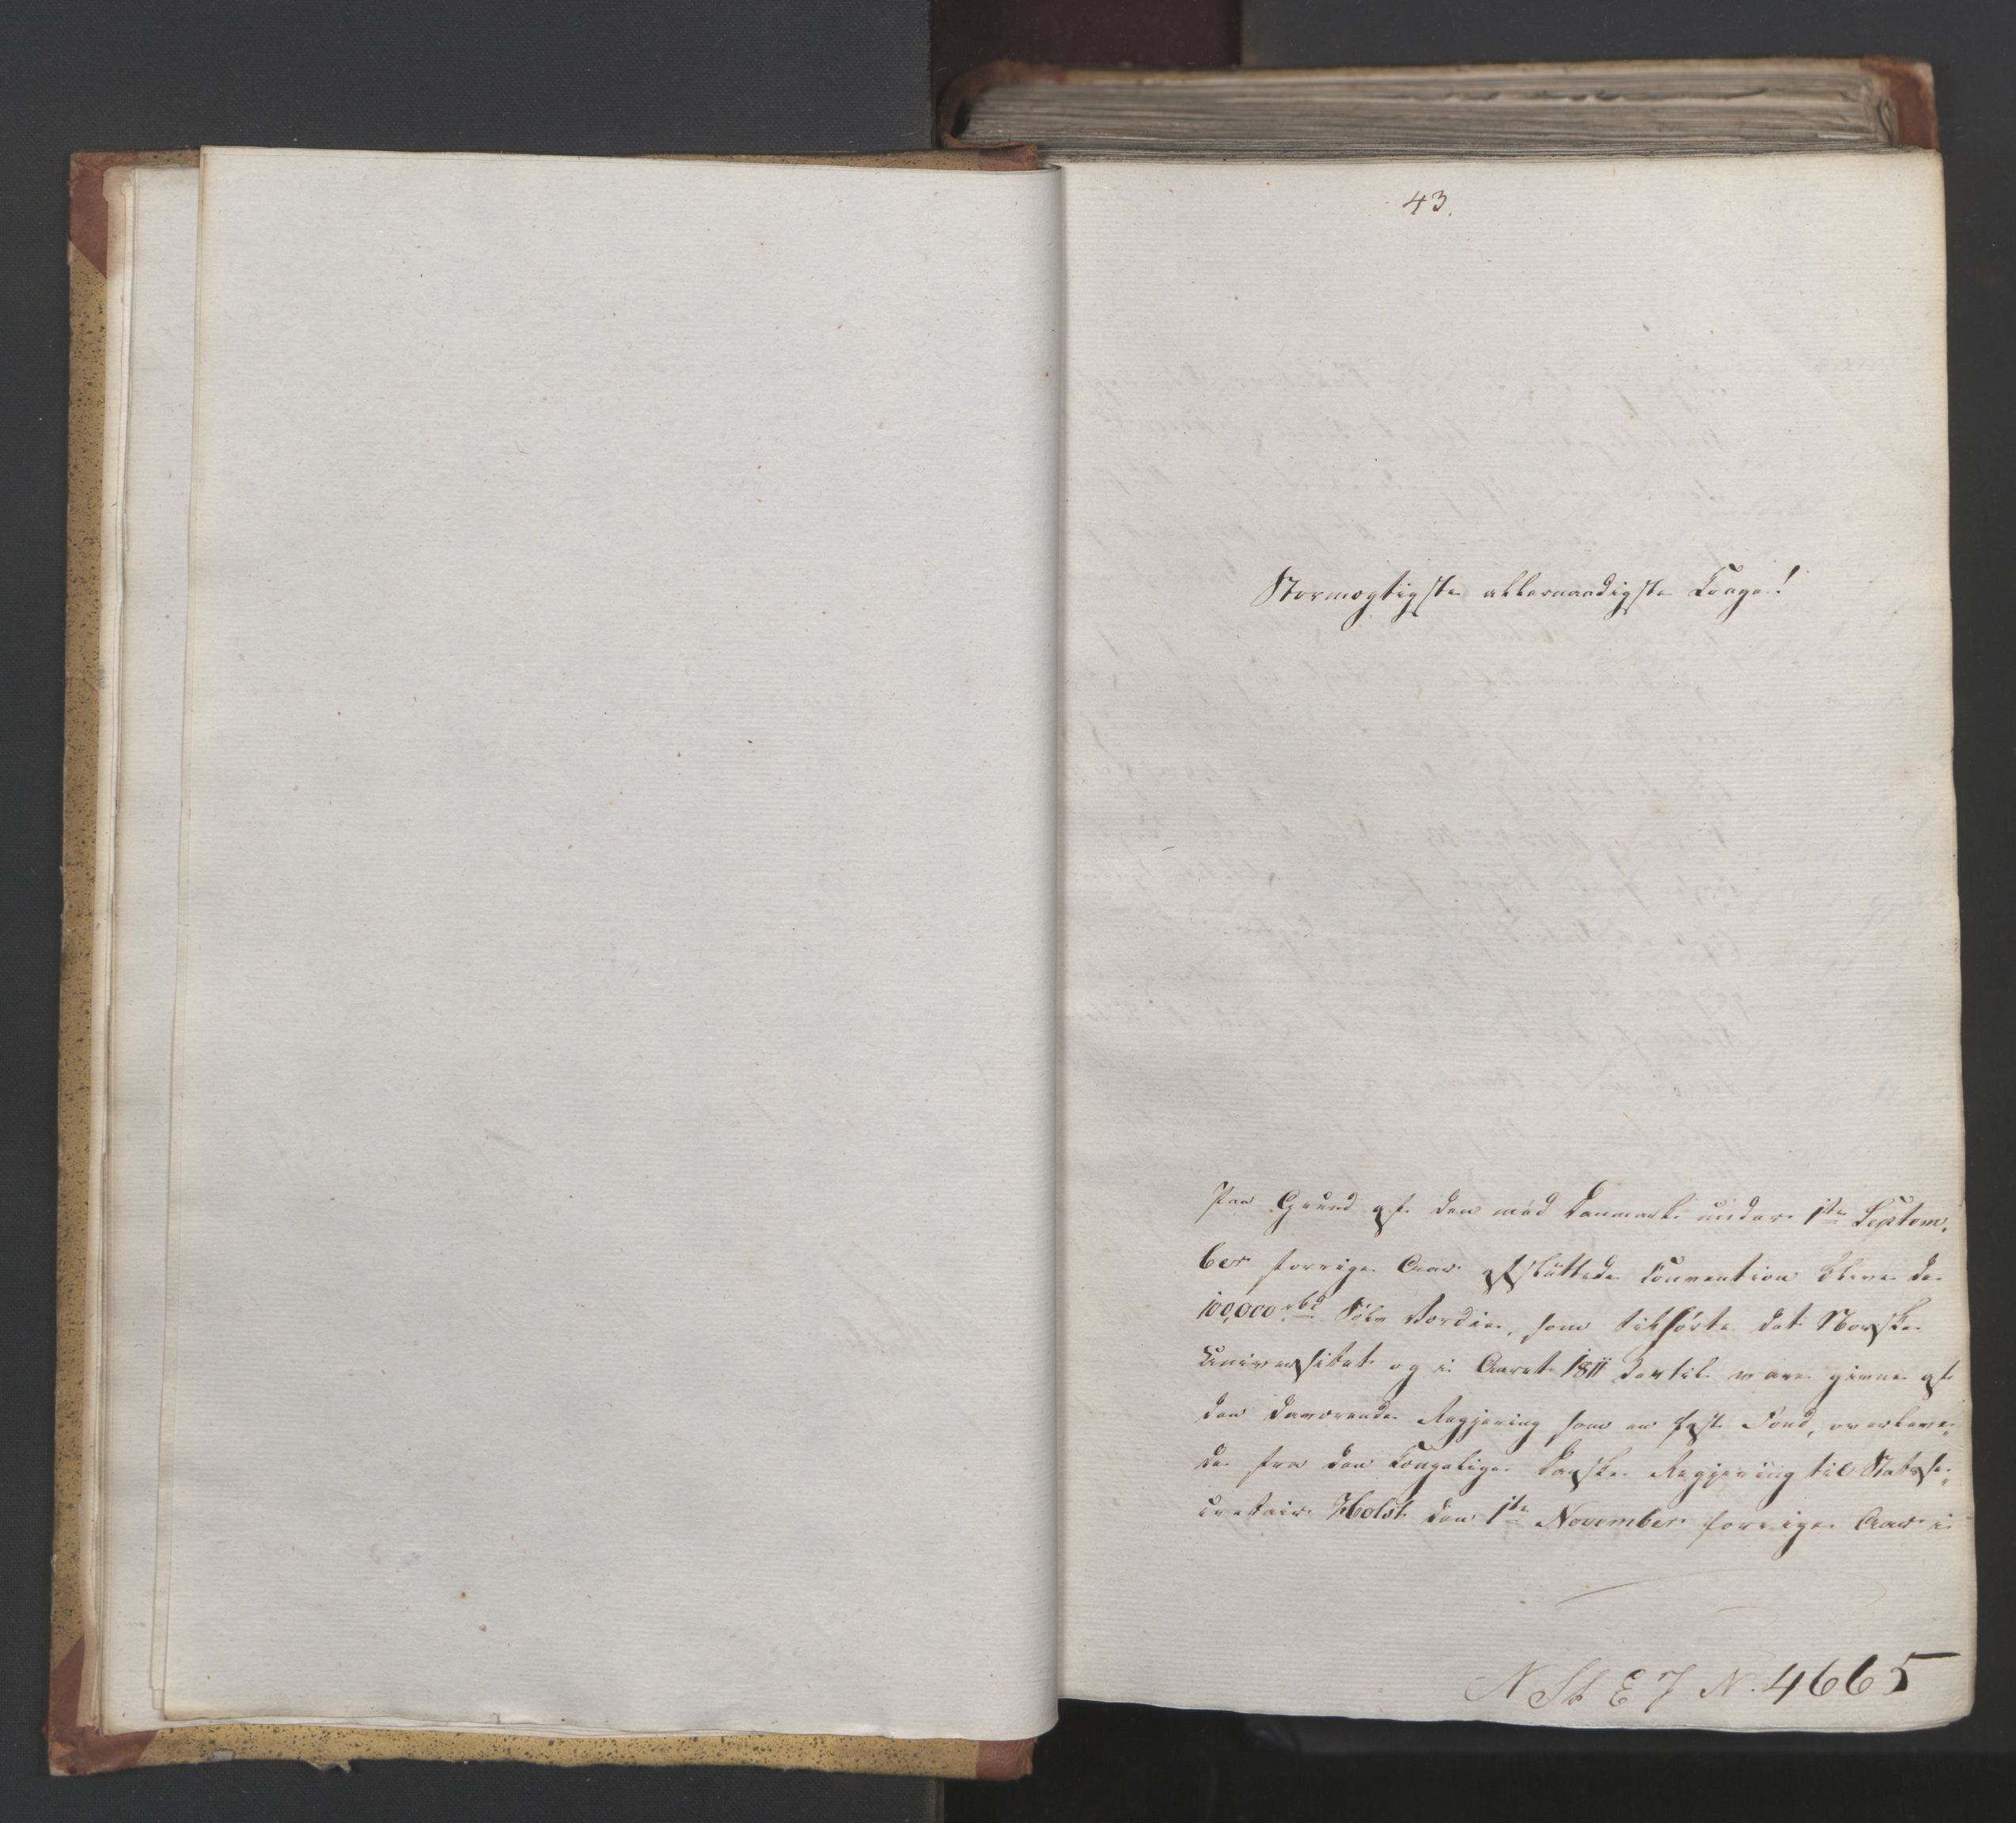 43.
Stormægtigste allernaadigste Konge!
Paa Grund af den med Danmark under 1ste Septem-
ber forrige Aar afsluttede Convention bleve de
100,000 rbd Sølv Værdie, som tilhørte det Norske
Universitet og i Aaret 1811 dertil vare givne af
den daværende Regjering som en fast Fond, overleve-
de fra den Kongelige danske Regjering til Statsse-
cretair Holst den 1ste November forrige Aar i
N St E 7 N. 4665